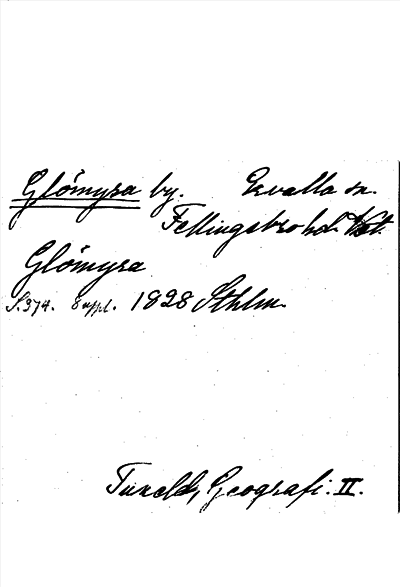 Glömysa by. Ervalla sn.
Fellingsbro hd. Vst.
Glömysa
S. 374. 8 uppl. 1828 Sthlm.
Tuneld, Geografi. II.